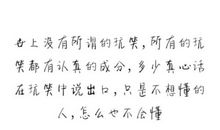 世上没有所谓的玩笑,所有的玩
笑都有认真的成分,多少真心话
在玩笑中说出口,只是不想懂的
人,怎么也不会懂